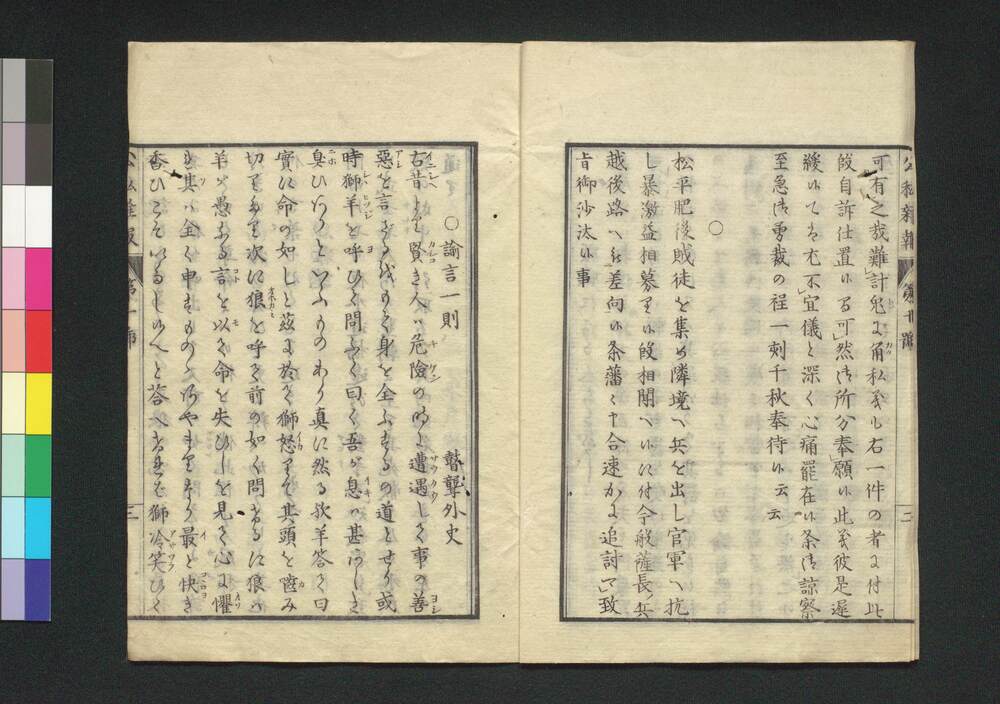 可有之哉難計兎に角私義も右一件の者に付此
段自訴仕置候間可然御所分奉願候此義彼是遅
緩候ては尤不宜儀と深く心痛罷在候条御諒察
至急御勇裁の程一刻千秋奉待候云云
○
松平肥後賊徒を集め隣境へ兵を出し官軍へ抗
し暴激益相募り候段相聞へ候に付今般薩長ノ兵
越後路へ被差向候条藩々申合速かに追討可致
旨御沙汰候事
公私雑報
第十號
二
○諭言一則
瞽聾外史
古昔より賢き人は危険の時に遭遇して事の善
惡を言さるを以て身を全ふするの道とせり或
時獅羊を呼ひて問ふて曰く吾が息は甚だしき
臭ひありといふものあり真に然る歟羊答て曰
實に命の如しと茲に於て獅怒りて其頭を噛み
切りたり次に狼を呼て前の如く問けるに狼は
羊が愚なる言を以て命を失ひしを見て心に懼
れ其は全く申すものゝあやまりなり最と快き
香ひこそいたし候へと答へけれは獅冷笑ひて
公私雑報
第十號
三